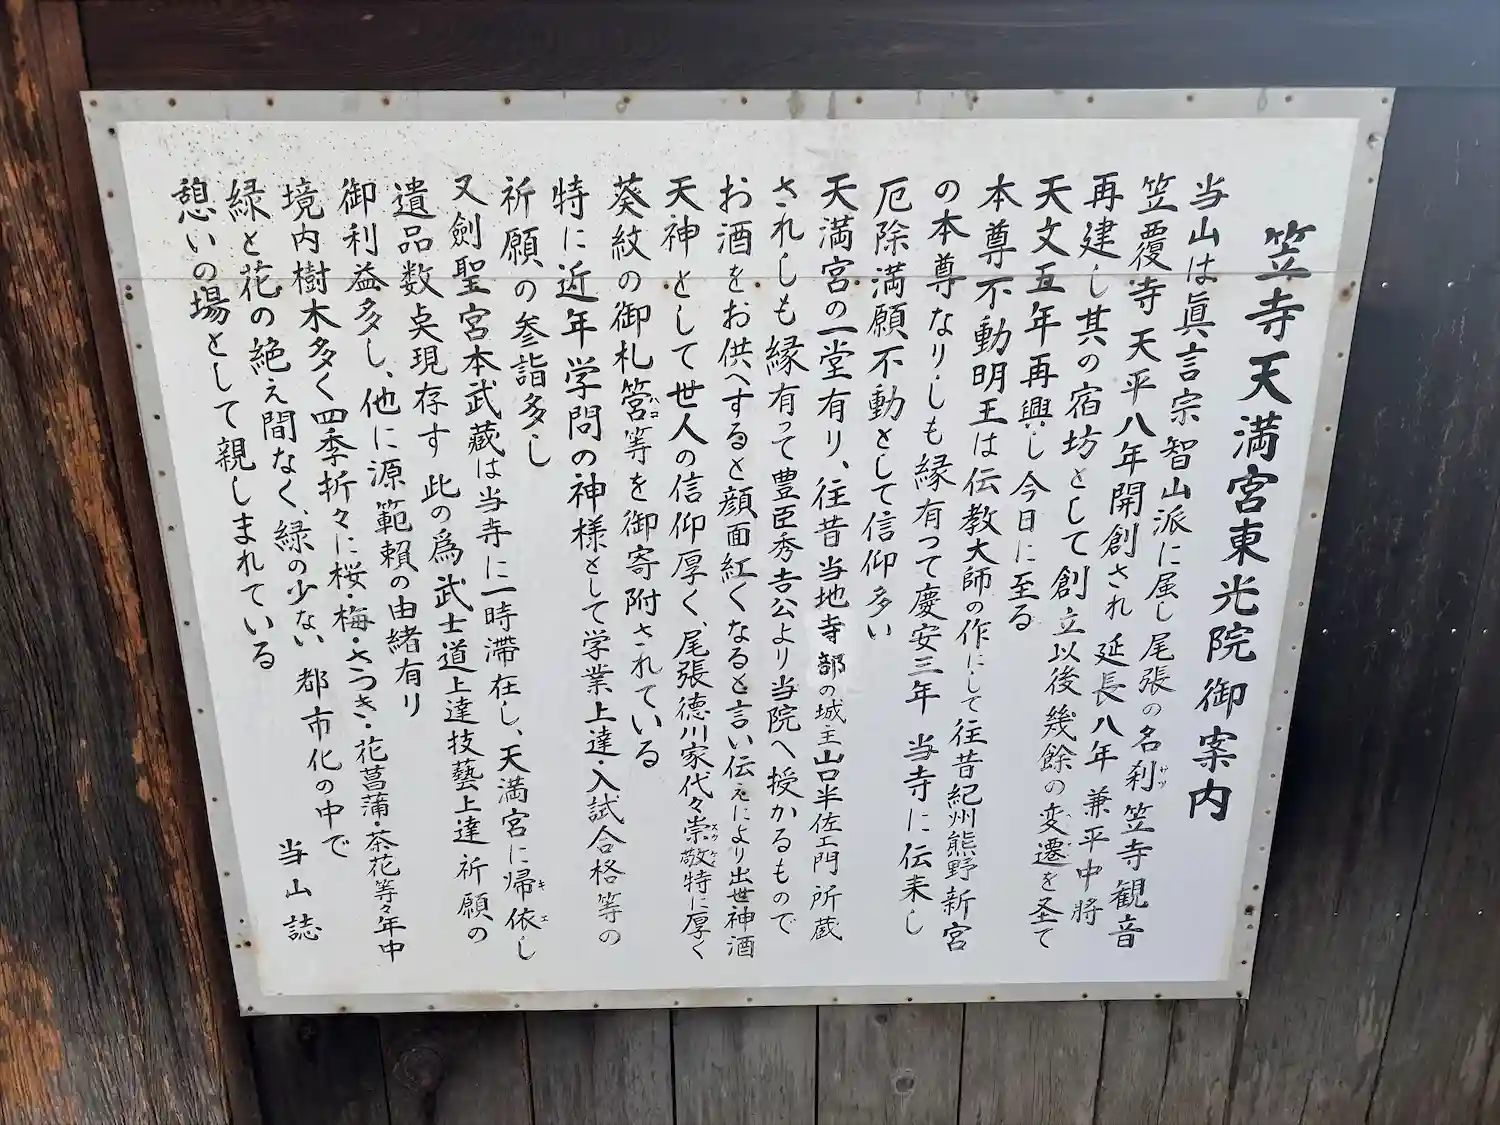 笠寺天満宮東光院御案内
当山は眞言宗智山派に属し尾張の名刹サツ笠寺観音
笠覆寺 天平八年開創され 延長八年 兼平中將
再建し其の宿坊として創立以後幾餘の変遷を圣て
天文五年再興し今日に至る
本尊不動明王は伝教大師の作にして往昔紀州熊野新宮
の本尊なりしも縁有って慶安三年 当寺に伝来し
厄除満願不動として信仰多い
天満宮の一堂有り、往昔当地寺部の城主山口半佐ェ門所蔵
されしも縁有って豊臣秀吉公より当院へ授かるもので
お酒をお供へすると顔面紅くなると言い伝えにより出世神酒
天神として世人の信仰厚く、尾張徳川家代々崇敬スウケイ特に厚く
葵紋の御札筥ハコ等を御寄附されている
特に近年学問の神様として学業上達・入試合格等の
祈願の参詣多し
又劍聖宮本武蔵は当寺に一時滞在し、天満宮に帰依キエし
遺品数点現存す 此の爲武士道上達技藝上達祈願の
御利益多し、他に源範賴の由緒有り
境内樹木多く四季折々に桜・梅・さつき・花菖蒲・茶花等々年中
緑と花の絶え間なく、緑の少ない 都市化の中で
憩いの場として親しまれている
当山誌